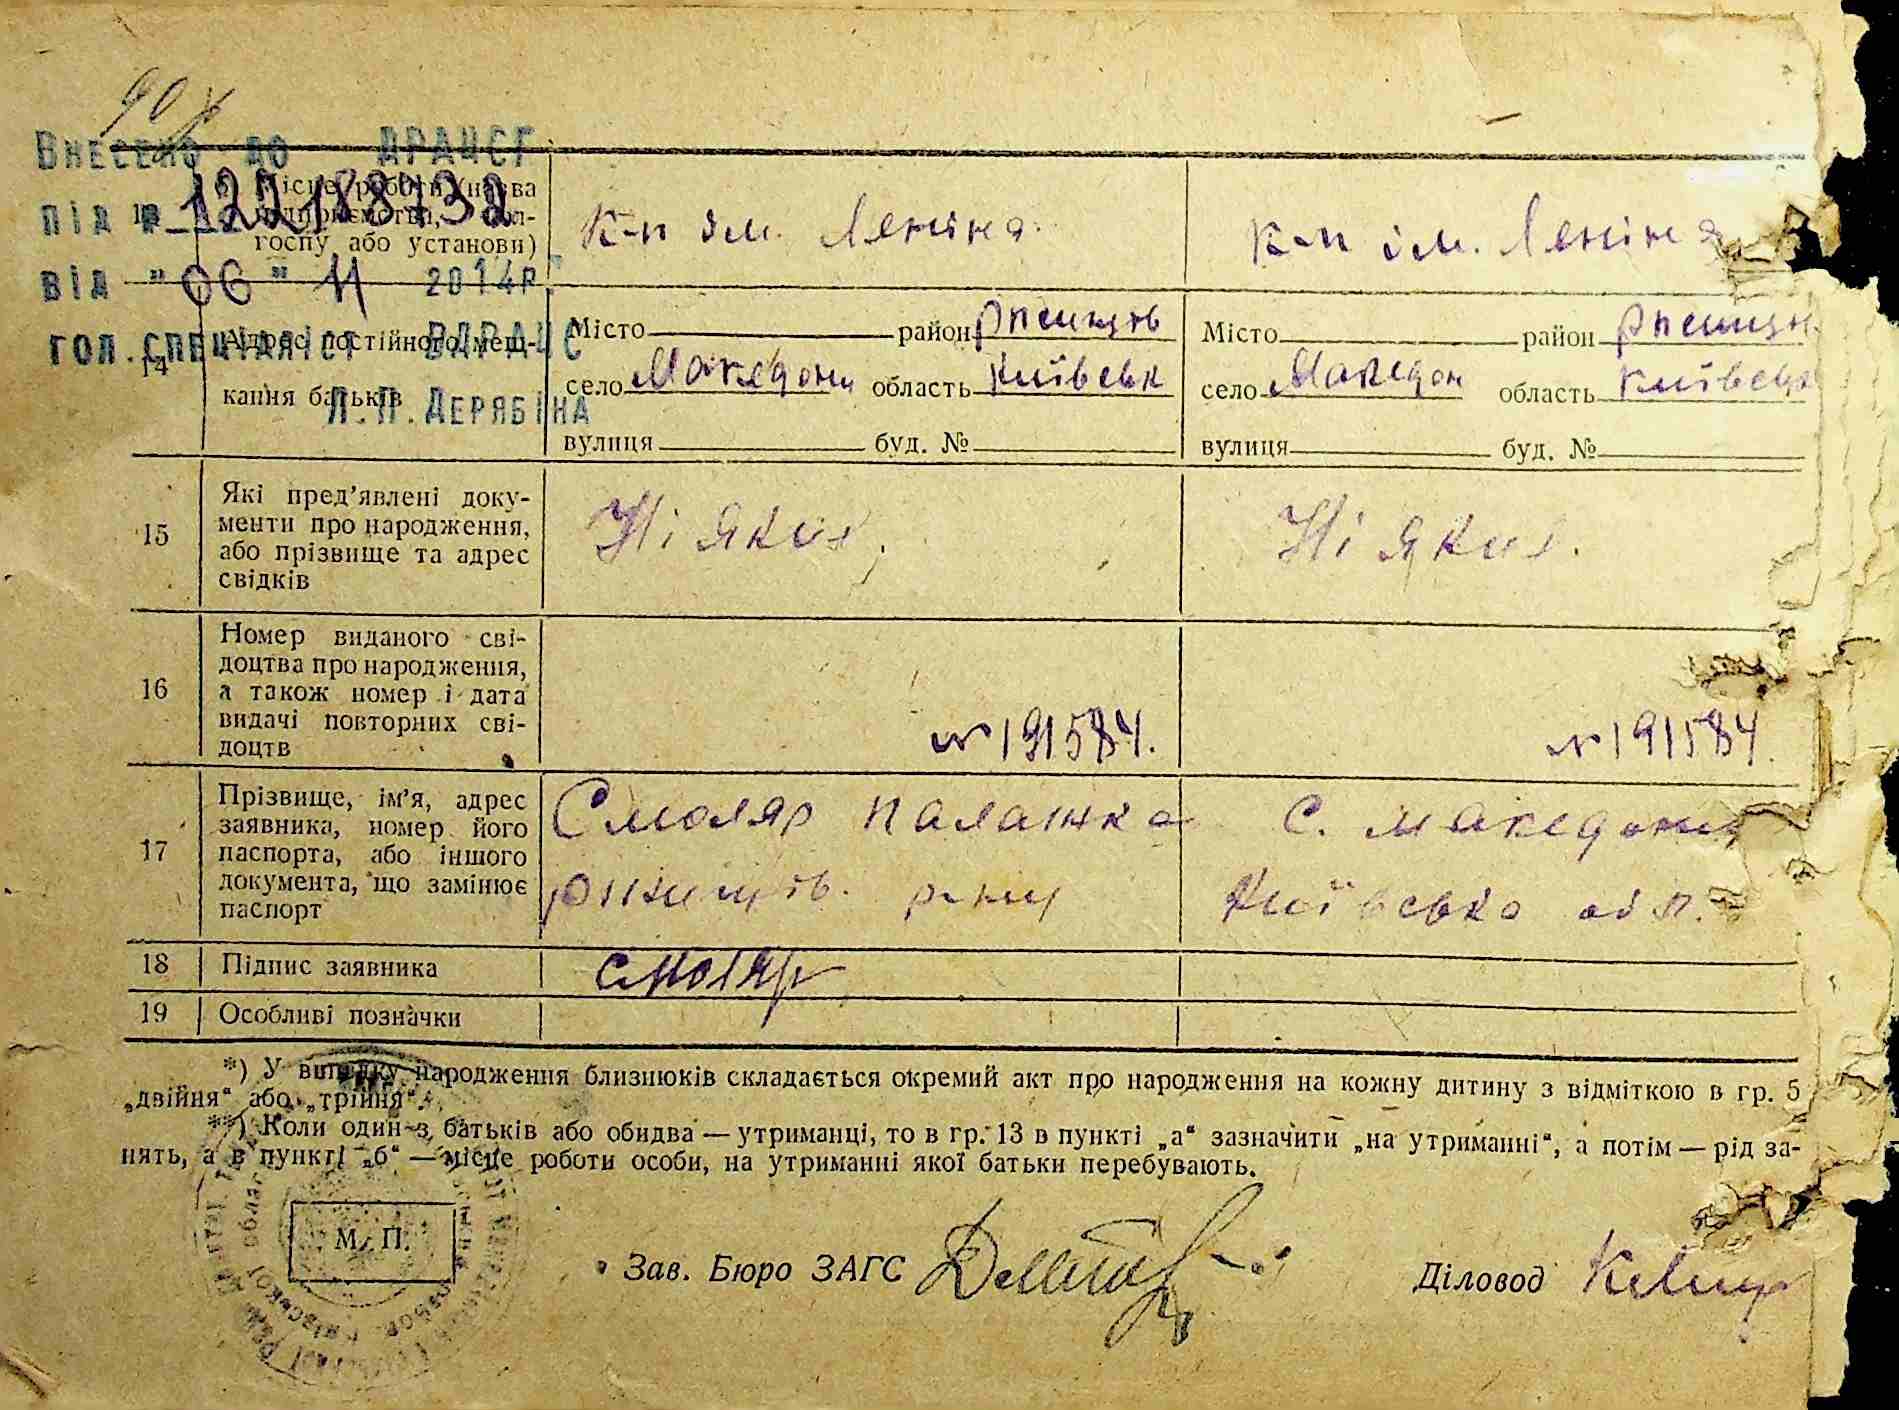 90
Внесено до ДРАЦСГ
під № 122188732
від "06" 11 2014р.
гол. спеціаліст ВДРАЦС
Л.П. Дерябіна
Місце роботи (назва
підприємства, кол-
госпу або установи)
К-п ім. Леніна.
К-п ім. Леніна
14
Адрес постійного меш-
кання батьків
Місто район Ржищів
село Македони область Київськ
вулиця буд. №
Місто район Ржищів
село Македон область Київськ
вулиця буд. №
15
Які пред'явлені доку-
менти про народження,
або прізвище та адрес
свідків
Ні яких.
Ні яких.
16
Номер виданого сві-
доцтва про народження,
а також номер і дата
видачі повторних сві-
доцтв
№ 191584.
№ 191584.
17
Прізвище, ім'я, адрес
заявника, номер його
паспорта, або іншого
документа, що замінює
паспорт
Смоляр Палажка с. Македони
Ржищів. р-ну Київсько обл.
18
Підпис заявника
Смоляр
19
Особливі позначки
*) У випадку народження близнюків складається окремий акт про народження на кожну дитину з відміткою в гр. 5
„двійня“ або „трійня“.
**) Коли один з батьків або обидва — утриманці, то в гр. 13 в пункті „а“ зазначити „на утриманні“, а потім — рід за-
нять, а в пункті „б“ — місце роботи особи, на утриманні якої батьки перебувають.
М. П.
Зав. Бюро ЗАГС
Діловод